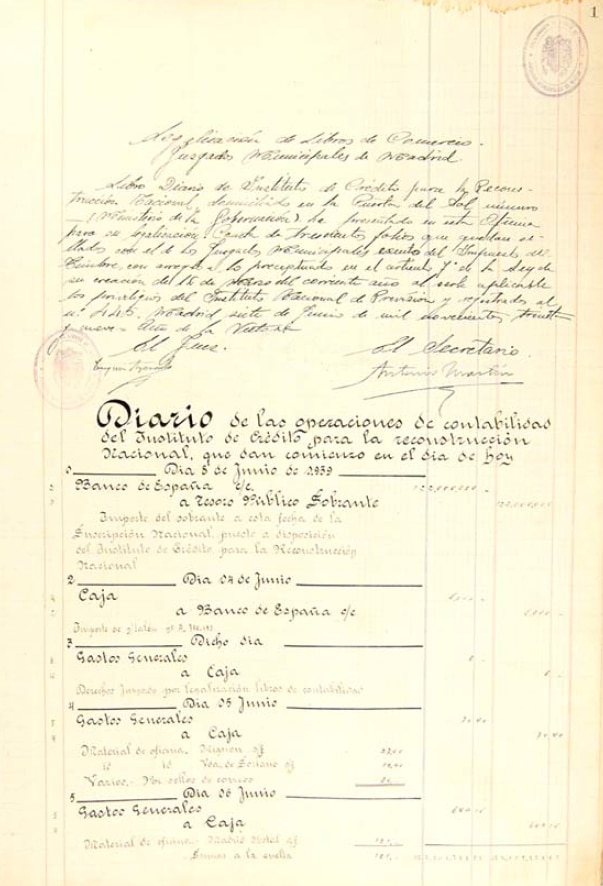 1
Legalización de Libros de Comercio.
Juzgados Municipales de Madrid
Libro Diario de Instituto de Crédito para la Recons-
trucción Nacional, domiciliado en la Puerta del Sol, número
(Ministerio de la Gobernación) ha presentado en esta Oficina
para su legalización. Consta de trescientos folios que quedan se-
llados con el de los Juzgados Municipales exentos del Impuesto del
Timbre, con arreglo a lo preceptuado en el artículo 7º de la Ley de
su creación del 16 de Marzo del corriente año al serle aplicable
los privilegios del Instituto Nacional de Previsión y registrados al
nº 445. Madrid siete de Junio de mil novecientos treinta
y nueve - Año de la Victoria
El Juez. El Secretario.
Antonio Martín
Diario de las operaciones de contabilidad
del Instituto de Crédito para la reconstrucción
Nacional, que dan comienzo en el día de hoy
Dia 8 de Junio de 1939
Banco de España c/c.
a Tesoro Público Sobrante
Importe del sobrante a esta fecha de la
Suscripción Nacional, puesto a disposición
del Instituto de Crédito para la Reconstrucción
Nacional
2 Dia 14 de Junio
Caja
a Banco de España c/c
Importe de
3 Dicho dia
Gastos Generales
a Caja
Derechos Juzgado por legalización libros de contabilidad
4 Dia 15 Junio
Gastos Generales
a Caja
Material de oficina.
id id Vda. de Soriano
Varios.- Por sellos de correos
5 Dia 16 Junio
Gastos Generales
a Caja
Material de oficina.
Sumas a la vuelta